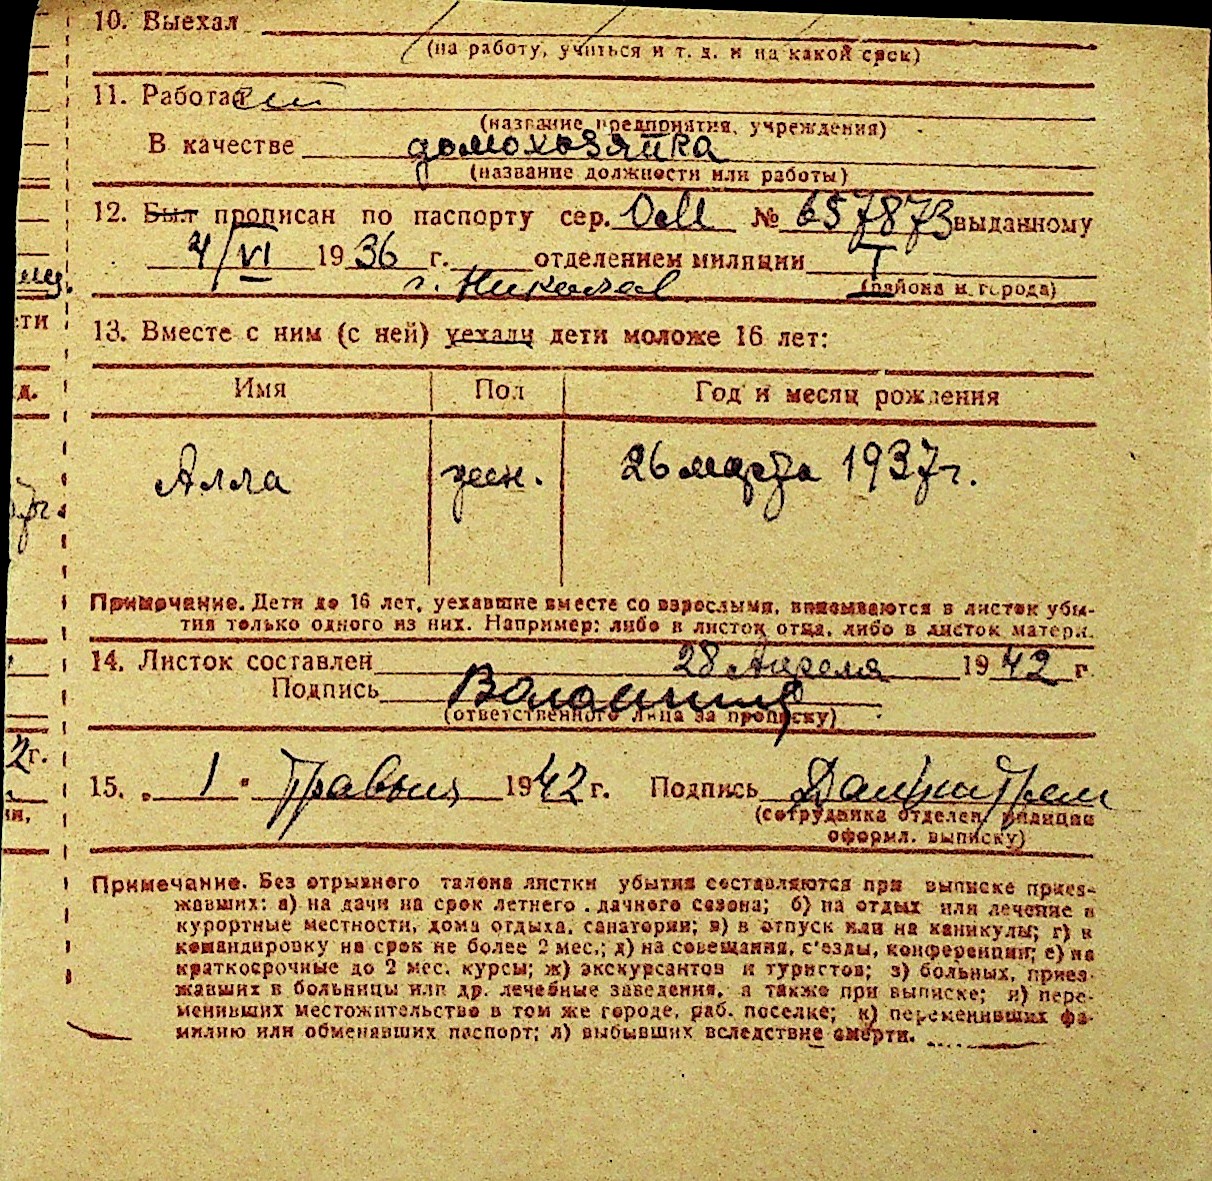 10. Выехал
(на работу, учиться и т. д. и на какой срок)
11. Работает
(название предприятия, учреждения)
В качестве домохозяйка
(название должности или работы)
12. Был прописан по паспорту сер. № 657873 выданному
4/VI 1936 г. отделением милиции I
г. Николаев (района и города)
13. Вместе с ним (с ней) уехали дети моложе 16 лет:
Имя Пол Год и месяц рождения
Алла жен. 26 марта 1937 г.
Примечание. Дети до 16 лет, уехавшие вместе со взрослыми, вписываются в листок убы-
тия только одного из них. Например: либо в листок отца, либо в листок матери.
14. Листок составлен 28 Апреля 1942 г
Подпись
(ответственного лица за прописку)
15. „ 1 " Травня 1942 г. Подпись
(сотрудника отделен. милиции
оформл. выписку)
Примечание. Без отрывного талона листки убытия составляются при выписке приез-
жавших: а) на дачи на срок летнего дачного сезона; б) на отдых или лечение в
курортные местности, дома отдыха, санатории; в) в отпуск или на каникулы; г) в
командировку на срок не более 2 мес.; д) на совещания, с'езды, конференции; е) на
краткосрочные до 2 мес. курсы; ж) экскурсантов и туристов; з) больных, приез-
жавших в больницы или др. лечебные заведения, а также при выписке; и) пере-
менивших местожительство в том же городе, раб. поселке; к) переменивших фа-
милию или обменявших паспорт; л) выбывших вследствие смерти.